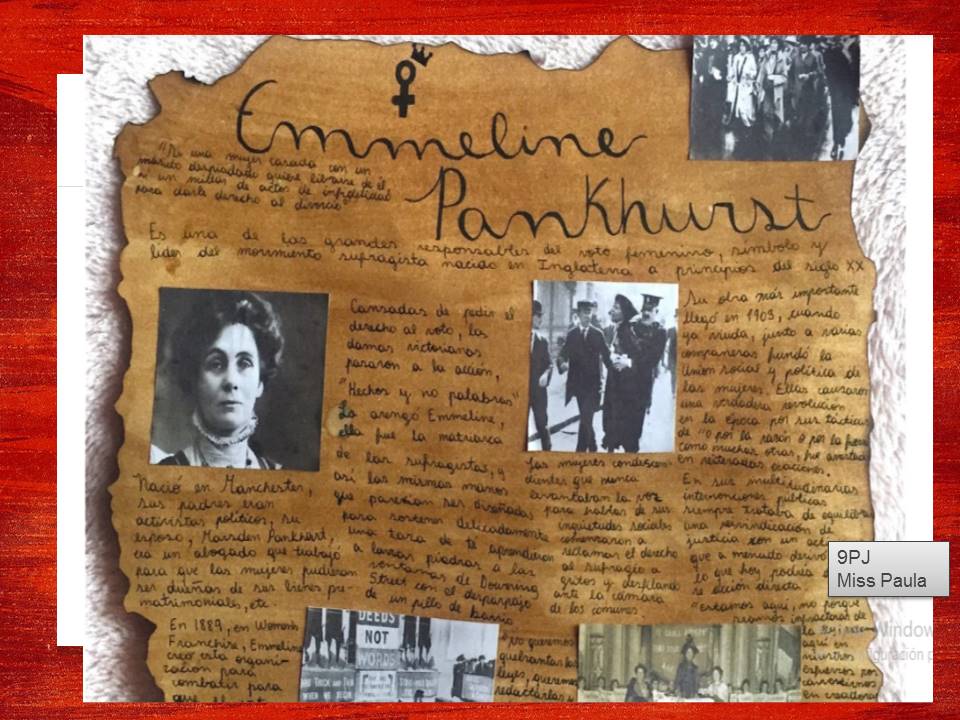 Emmeline
Pankhurst
una mujer casada con un
marido despiadado quiere librarse de él
ni un millar de actos de infidelidad
para darle derecho al divorcio"
Es una de las grandes responsables del voto femenino, símbolo y
líder del movimiento sufragista nacido en Inglaterra a principios del siglo XX
Nació en Manchester,
sus padres eran
activistas políticos, su
esposo,
era un abogado que trabajó
para que las mujeres pudieran
ser dueñas de sus bienes pre-
matrimoniales, etc
En 1889, en Womens
Franchise, Emmeline
creo esta organi-
zación para
combatir para
que
Cansadas de pedir el
derecho al voto, las
damas victorianas
pasaron a la acción,
"Hechos y no palabras"
La arengó Emmeline,
ella fue la matriarca
de las sufragistas, y
así las mismas manos
que parecían ser diseñadas
para sostener delicadamente
una taza de té aprendieron
a lanzar piedras a las
ventanas de Downing
Street con el desparpajo
de un pillo de barrio
Las mujeres condescen-
dientes que nunca
levantaban la voz
para hablar de sus
inquietudes sociales
comenzaron a
reclamar el derecho
al sufragio a
gritos y desfilando
ante la cámara
de los comunes
no queremos
quebrantar las
leyes, queremos
redactarlas
Su obra más importante
llegó en 1903, cuando
ya viuda, junto a varias
compañeras fundó la
Unión social y política de
las mujeres. Ellas causaron
una verdadera revolución
en la época por sus tácticas
de "O por la razón o por la fuerza
como muchas otras, fue arrestada
en reiteradas ocasiones.
En sus multitudinarias
intervenciones públicas
siempre trataba de equilibrar
una reivindicación de
justicia con un
que a menudo derivó
lo que hoy podría
se acción directa
"estamos aquí, no porque
seamos infractoras de
la ley
aquí en
nuestros
esfuerzos por
convertirnos
en creadoras
DEEDS
NOT
WORDS
9PJ
Miss Paula
Window
guración